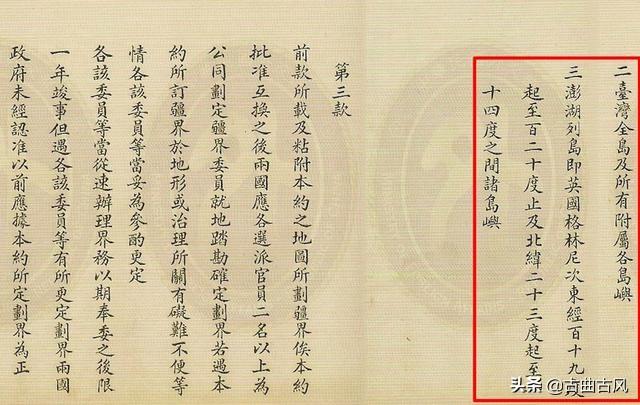 二臺灣全島及所有附屬各島嶼
三澎湖列島即英國格林尼次東經百十九度
起至百二十度止及北緯二十三度起至二
十四度之間諸島嶼
第三款
前款所載及粘附本約之地圖所劃疆界俟本約
批准互換之後兩國應各選派官員二名以上為
公同劃定疆界委員就地踏勘確定劃界若遇本
約所訂疆界於地形或治理所關有礙難不便等
情各該委員等當妥為參酌更定
各該委員等當從速辦理界務以期奉委之後限
一年竣事但遇各該委員等有所更定劃界兩國
政府未經認准以前應據本約所定劃界為正
头条 @古曲古风